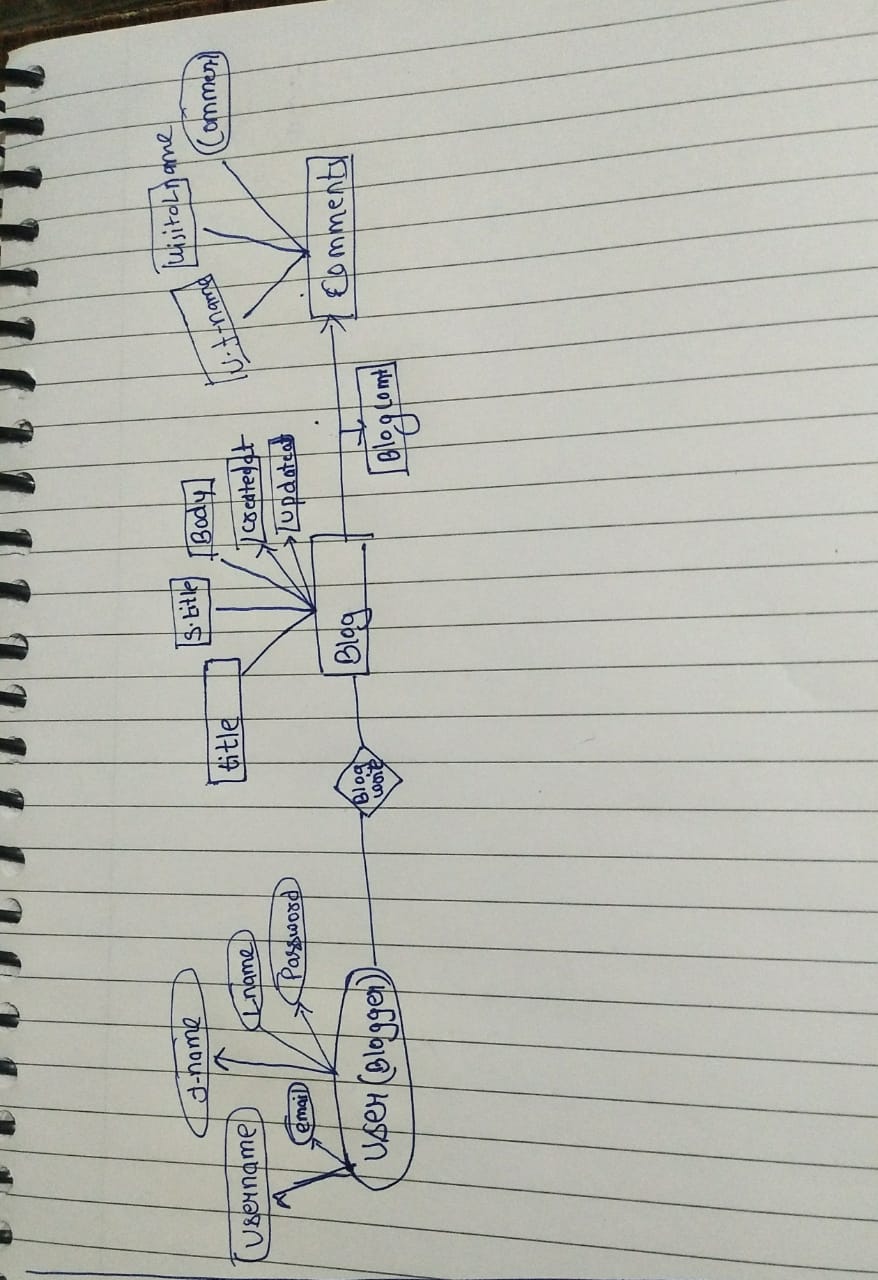 Username
f-name
email
Lname
Password
User (Blogger)
Blog
write
title
S.title
Body
Createdat
Updateat
Blog
BlogComt
V.f-name
VisitoLname
Comment
Comments